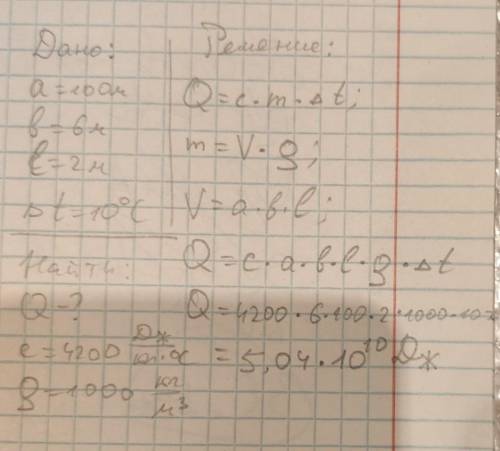 Дано:
a=100м
b=6м
l=2м
Δt=10°C
Найти:
Q-?
c=4200 Дж/кг·°C
ρ=1000 кг/м³
Решение:
Q=c·m·Δt;
m=V·ρ;
V=a·b·l;
Q=c·a·b·l·ρ·Δt
Q=4200·6·100·2·1000·10=
=5,04·10¹⁰ Дж